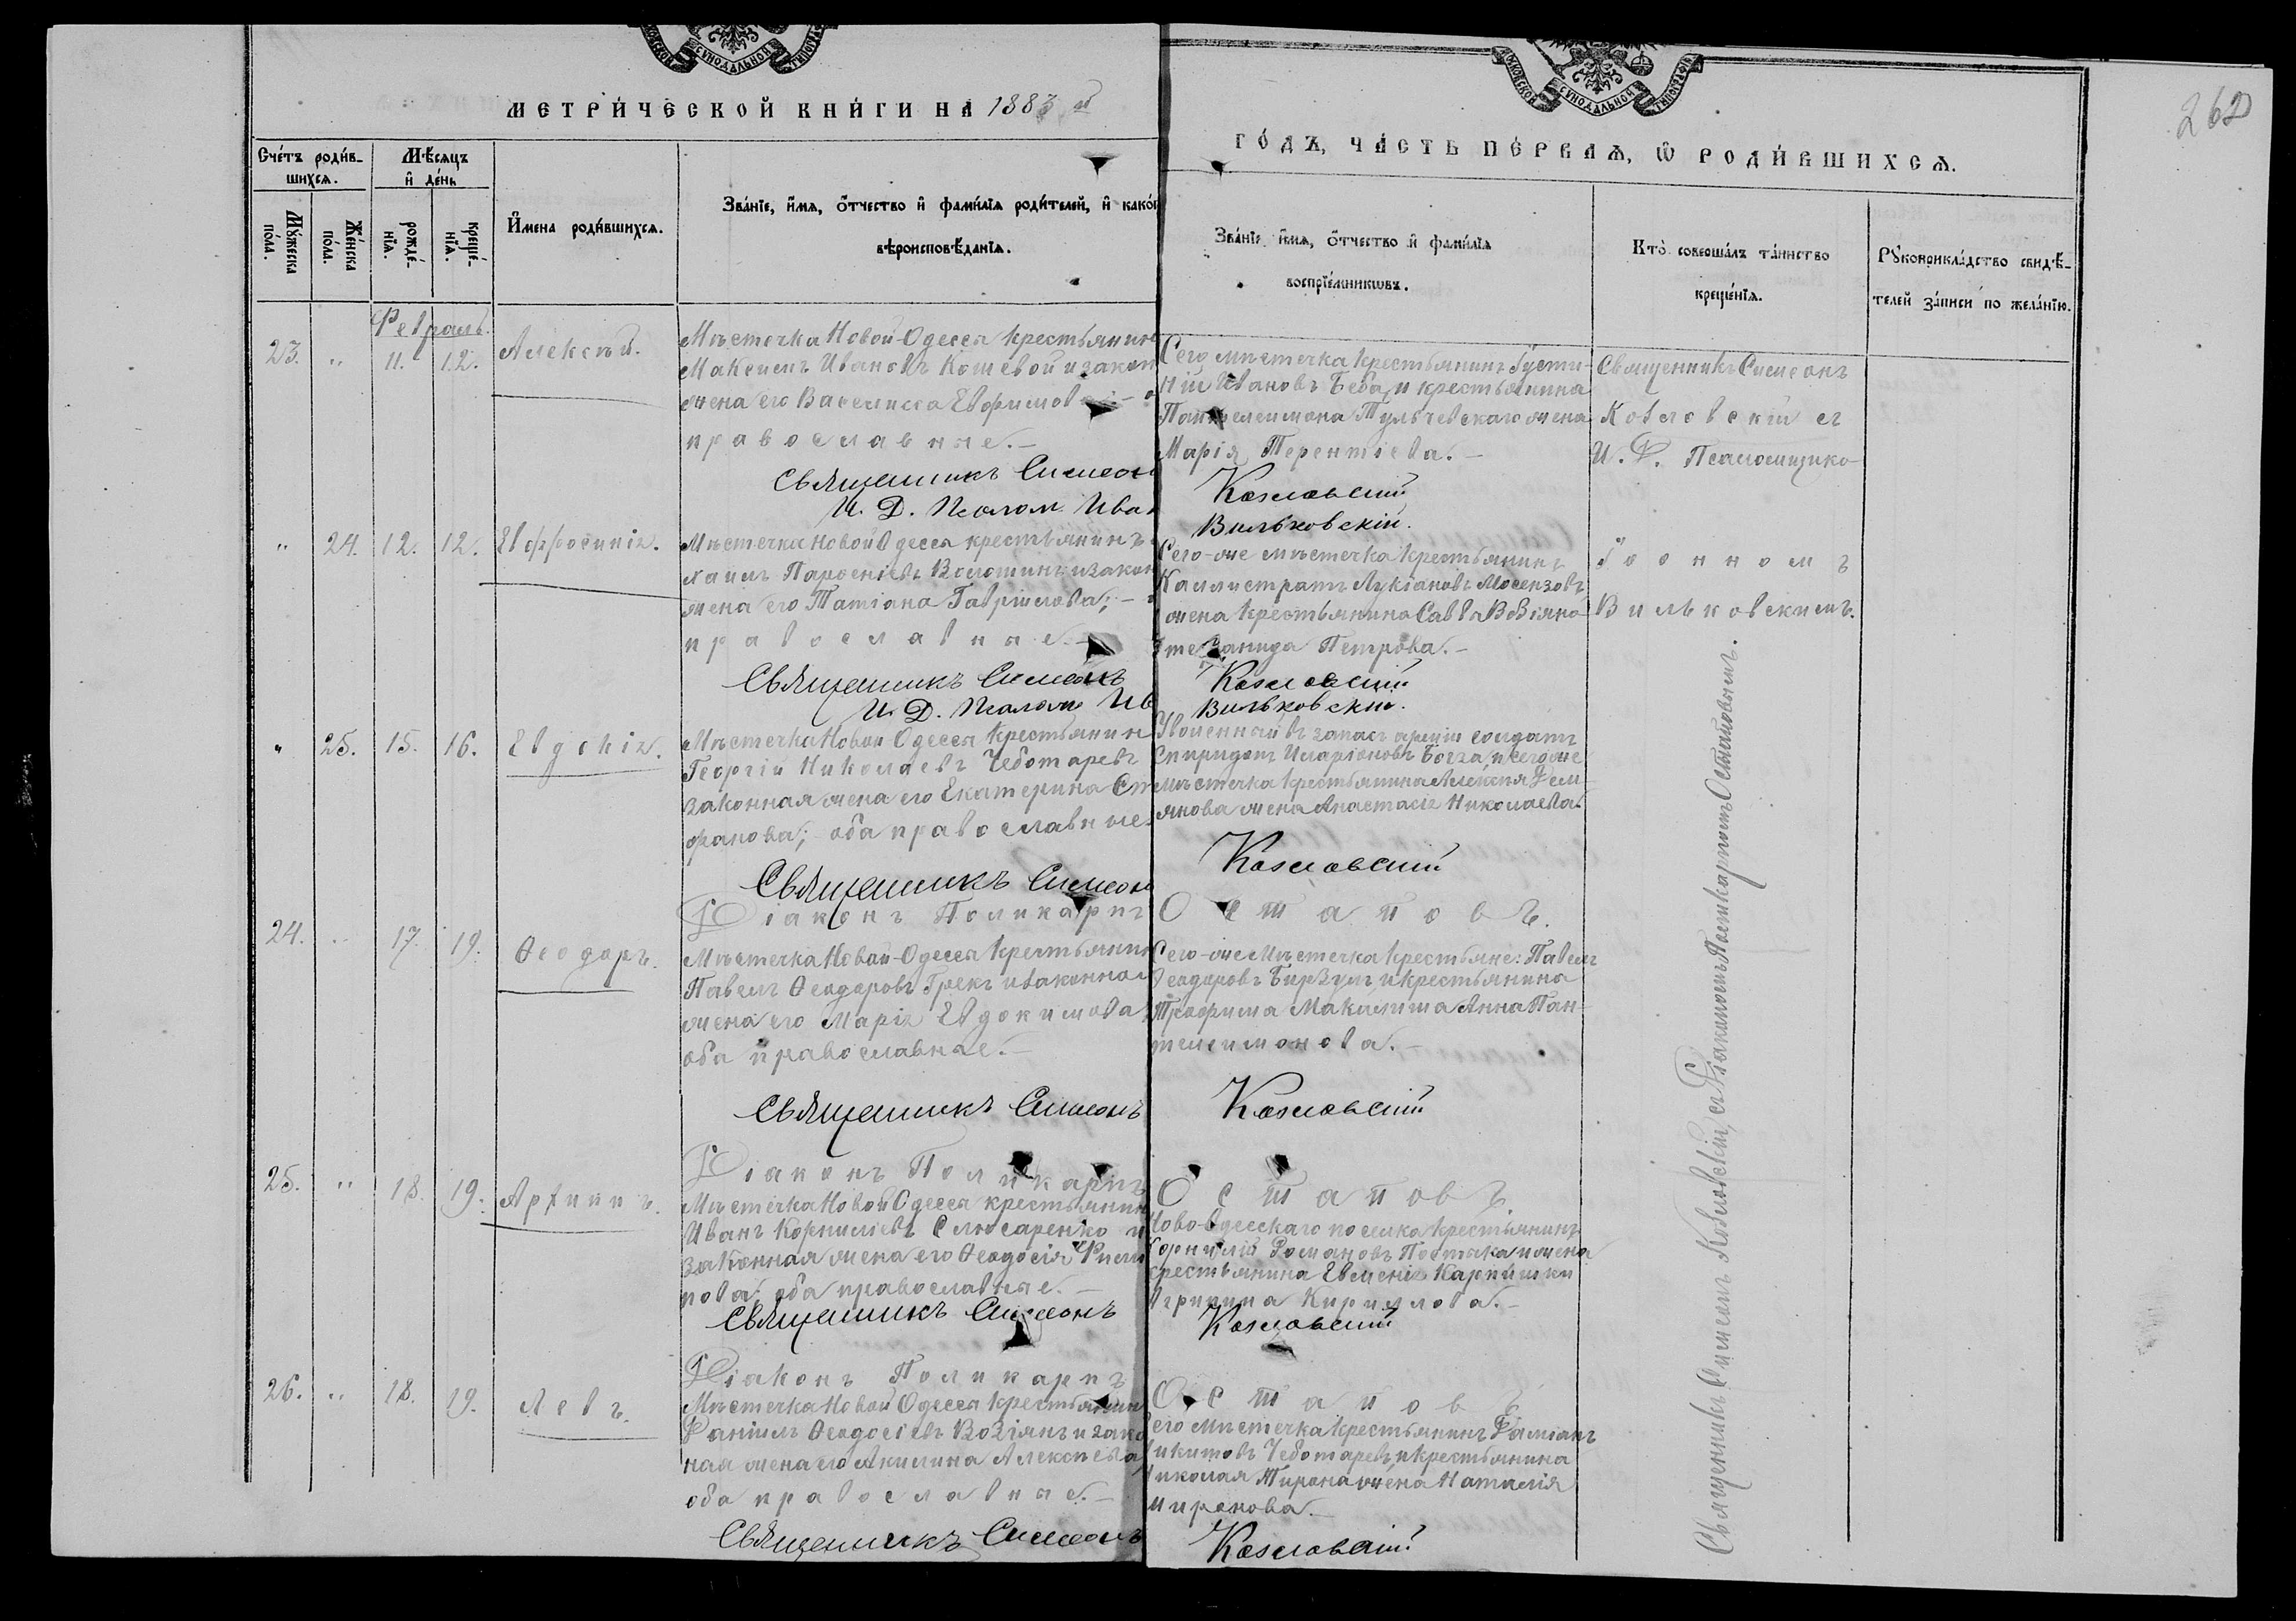 МЕТРИЧЕСКОЙ КНИГИ НА 1883 й
ГОДЪ, ЧАСТЬ ПЕРВАЯ, Ѡ РОДИВШИХСЯ.
262
Счетъ родив-
шихся.
Мѣсяцъ
и день
Мꙋжеска
пола.
Женска
пола.
рожде-
нїя.
креще-
нїя.
Имена родившихся.
Званїе, имя, отчество и фамилїя родителей, и како
вѣроисповѣданїя.
Званїе, имя, отчество и фамилїя
воспрїемникѡвъ.
Кто совершалъ таинство
крещенїя.
Рꙋкоприкладство свидѣ-
телей записи по желанїю.
Февраль.
23. " 11. 12. Алексѣй.
Мѣстечка Новой-Одесса крестьянинъ
Максимъ Ивановъ Кошевой и закон
жена его Василисса Евфимова
православные.-
Священникъ Симеонъ
И. Д. Псалом. Ива
Сего мѣстечка крестьянинъ Густи-
ній Ивановъ Беба, и крестьянина
Пантелеимона Тульчевскаго жена
Марія Терентіева.-
Козловскій
Вильковскій.
Священникъ Симеонъ
Козловскій съ
И. Д. Псаломщико
" 24. 12. 12. Евфросинія.
Мѣстечка Новой Одесса крестьянинъ
хаилъ Парѳеніевъ Волошинъ и закон
жена его Татіана Гавріилова; -
православные.-
Священникъ Симеонъ
И. Д. Псалом Ив
Сего-же мѣстечка крестьянинъ
Каллистратъ Лукіановъ Мосензовъ
жена крестьянина Саввы Возіяно
Петрова.-
Козловскій
Вильковскій.
Іоанномъ
Вильковскимъ.
" 25. 15. 16. Евдокія.
Мѣстечка Новой Одесса крестьянинъ
Георгій Николаевъ Чеботаревъ
законная жена его Екатерина Сте
фанова; оба православные.
Священникъ Симеонъ
Діаконъ Поликарпъ
Уволенный въ запасъ арміи солдатъ
Спиридонъ Иларіоновъ Богза, и сего же
мѣстечка крестьянина Алексѣя Дем-
янова жена Анастасія Николаева.
Козловскій
Остаповъ.
24. " 17. 19. Ѳеодоръ.
Мѣстечка Новой-Одесса крестьянинъ
Павелъ Ѳеодоровъ Грекъ и законная
жена его Марія Евдокимова
оба православные.-
Священникъ Симеонъ
Діаконъ Поликарпъ
Сего-же мѣстечка крестьяне: Павелъ
Ѳеодоровъ Бирзулъ и крестьянина
Трофима Макилиша Анна Пан-
телеимонова.-
Козловскій
Остаповъ
25. " 18. 19. Архиппъ.
Мѣстечка Новой Одесса крестьянинъ
Иванъ Корниліевъ Слюсаренко и
законная жена его Ѳеодосія Фили
пова; оба православные.-
Священникъ Симеонъ
Діаконъ Поликарпъ
Ново-Одесскаго поселка крестьянинъ
Корнилій Романовъ Постака и жена
крестьянина Евменія
Агрипина Кириллова.-
Козловскій
Остаповъ
26. " 18. 19. Левъ.
Мѣстечка Новой Одесса крестьянинъ
Даніилъ Ѳеодосіевъ Возіянъ и закон
ная жена его Акилина Алексѣева,
оба православные.-
Священникъ Симеонъ
Сего мѣстечка крестьянинъ Даміанъ
Никитовъ Чеботаревъ, и крестьянина
Николая Тирона жена Наталія
Миронова.-
Козловскій
Священникъ Симеонъ Козловскій, съ Діакономъ Поликарпомъ Остаповымъ.